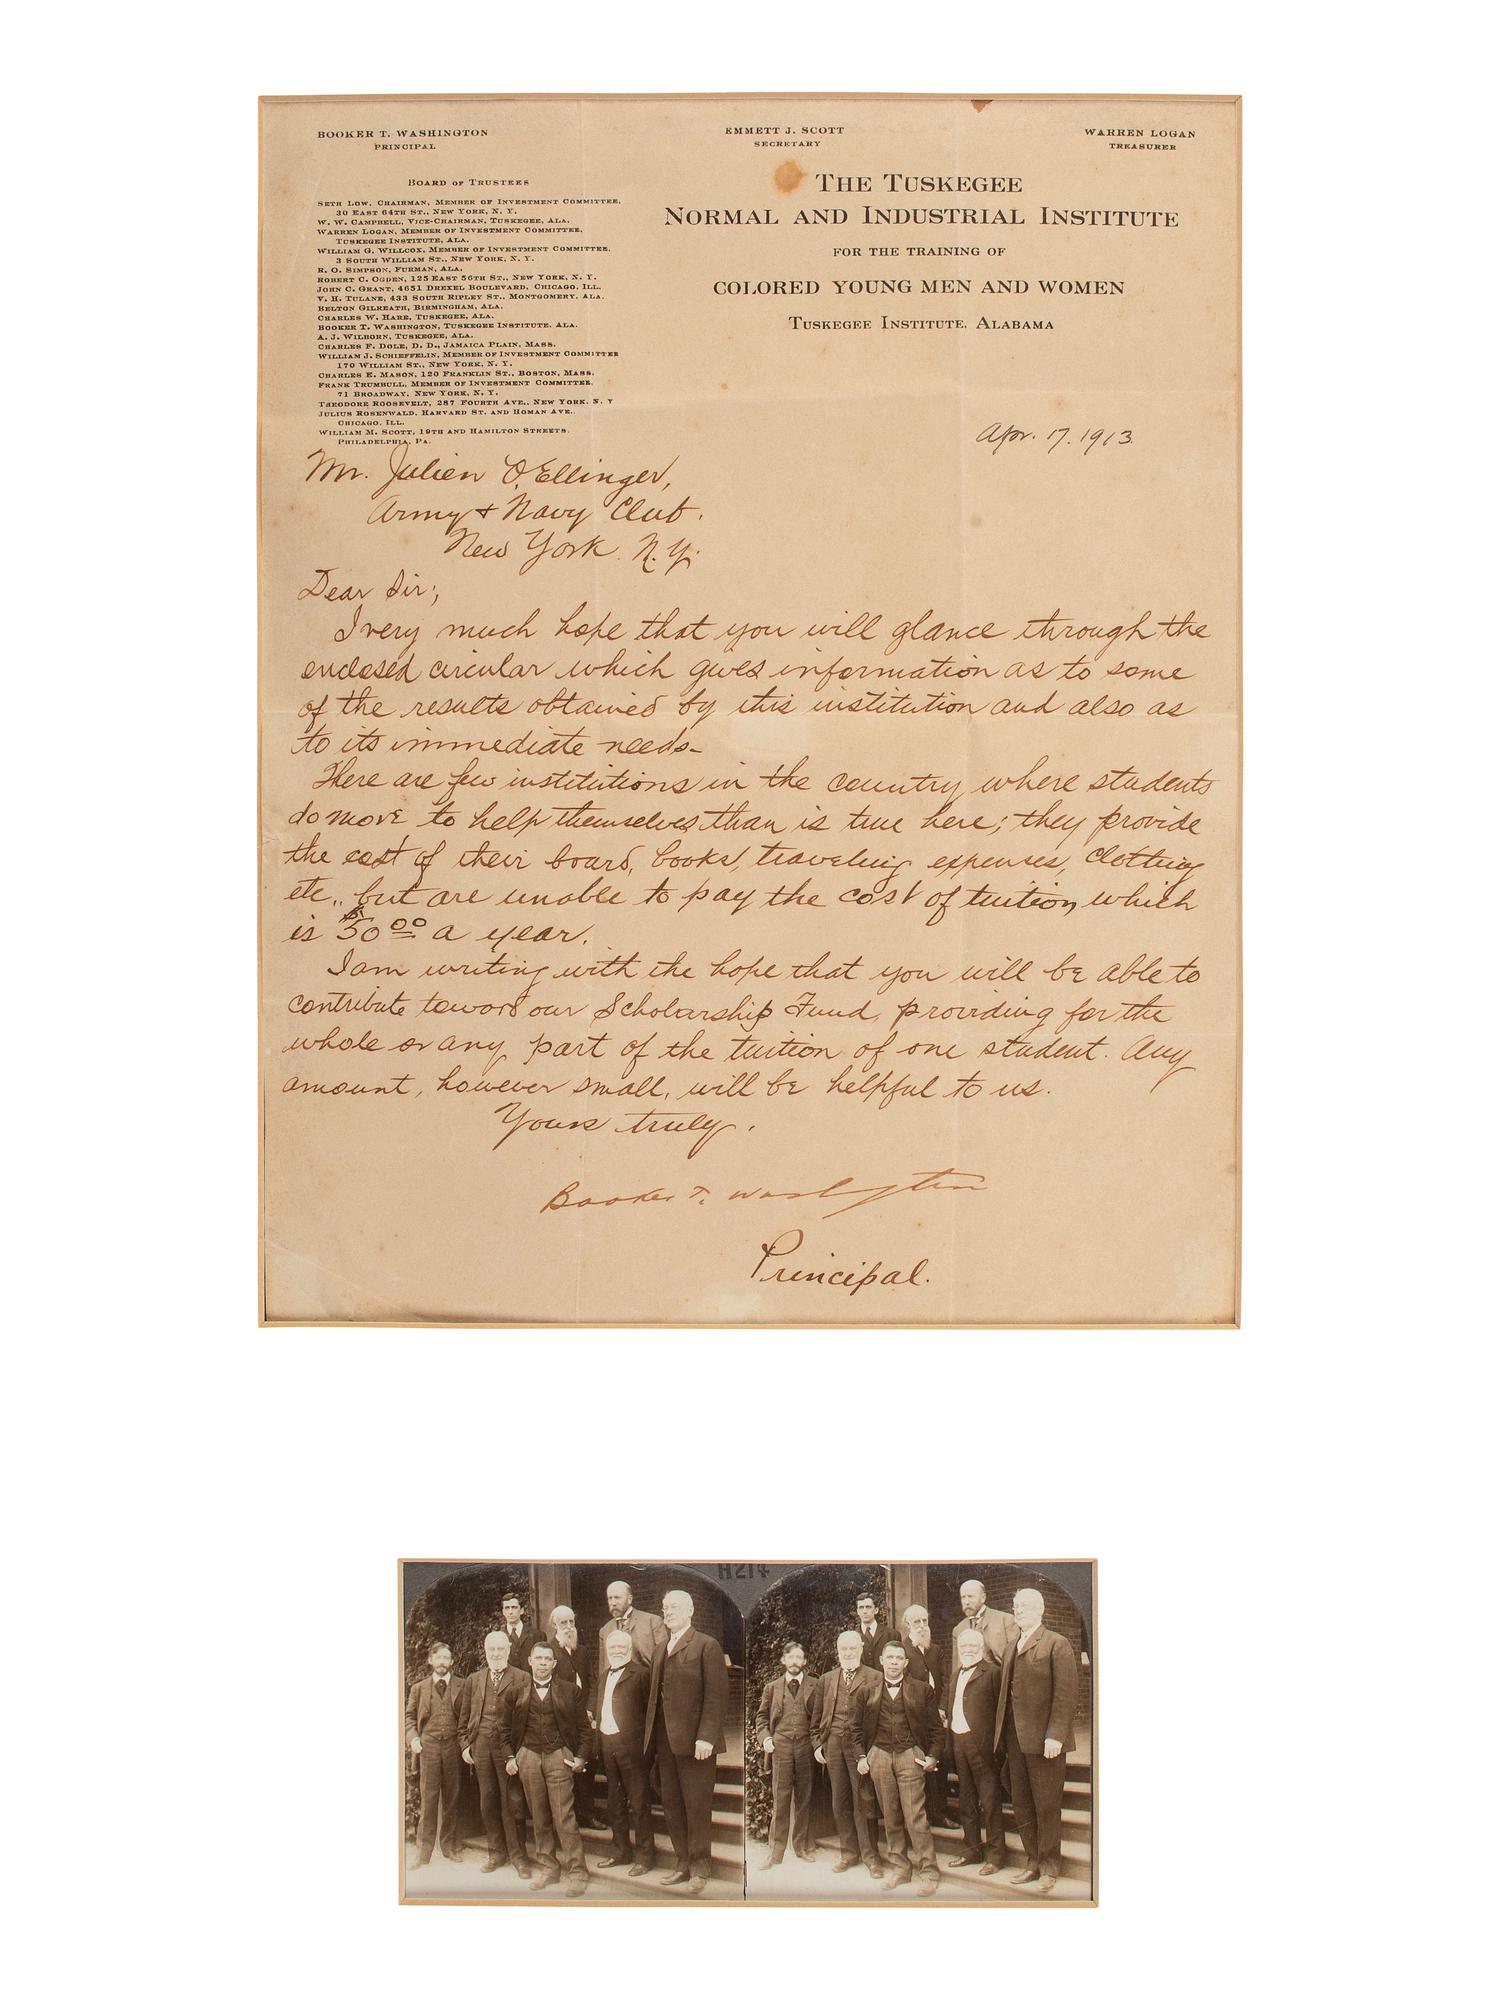 BOOKER T. WASHINGTON
PRINCIPAL
EMMETT J. SCOTT
SECRETARY
WARREN LOGAN
TREASURER
BOARD OF TRUSTEES
SETH LOW, CHAIRMAN, MEMBER OF INVESTMENT COMMITTEE,
30 EAST 64TH ST., NEW YORK, N. Y.
W. W. CAMPBELL, VICE-CHAIRMAN, TUSKEGEE, ALA.
WARREN LOGAN, MEMBER OF INVESTMENT COMMITTEE,
TUSKEGEE INSTITUTE, ALA.
WILLIAM G. WILLCOX, MEMBER OF INVESTMENT COMMITTEE,
3 SOUTH WILLIAM ST., NEW YORK, N. Y.
R. O. SIMPSON, FURMAN, ALA.
ROBERT C. OGDEN, 125 EAST 56TH ST., NEW YORK, N. Y.
JOHN C. GRANT, 4651 DREXEL BOULEVARD, CHICAGO, ILL.
V. H. TULANE, 433 SOUTH RIPLEY ST., MONTGOMERY, ALA.
BELTON GILREATH, BIRMINGHAM, ALA.
CHARLES W. HARE, TUSKEGEE, ALA.
BOOKER T. WASHINGTON, TUSKEGEE INSTITUTE, ALA.
A. J. WILBORN, TUSKEGEE, ALA.
CHARLES F. DOLE, D. D., JAMAICA PLAIN, MASS.
WILLIAM J. SCHIEFFELIN, MEMBER OF INVESTMENT COMMITTEE
170 WILLIAM ST., NEW YORK, N. Y.
CHARLES E. MASON, 120 FRANKLIN ST., BOSTON, MASS.
FRANK TRUMBULL, MEMBER OF INVESTMENT COMMITTEE,
71 BROADWAY, NEW YORK, N. Y.
THEODORE ROOSEVELT, 287 FOURTH AVE., NEW YORK, N. Y
JULIUS ROSENWALD, HARVARD ST. AND HOMAN AVE.,
CHICAGO, ILL.
WILLIAM M. SCOTT, 19TH AND HAMILTON STREETS,
PHILADELPHIA, PA.
THE TUSKEGEE
NORMAL AND INDUSTRIAL INSTITUTE
FOR THE TRAINING OF
COLORED YOUNG MEN AND WOMEN
TUSKEGEE INSTITUTE, ALABAMA
Apr. 17. 1913
Mr. Julien O. Ellinger,
Army & Navy Club.
New York. N.Y.
Dear Sir;
I very much hope that you will glance through the
enclosed circular which gives information as to some
of the results obtained by this institution and also as
to its immediate needs-
There are few institutions in the country where students
do more to help themselves than is true here; they provide
the cost of their board, books, traveling expenses, clothing
etc., but are unable to pay the cost of tuition, which
is $50.00 a year.
I am writing with the hope that you will be able to
contribute toward our Scholarship Fund, providing for the
whole or any part of the tuition of one student. Any
amount, however small, will be helpful to us.
Yours truly.
Booker T. Washington
Principal.
H214